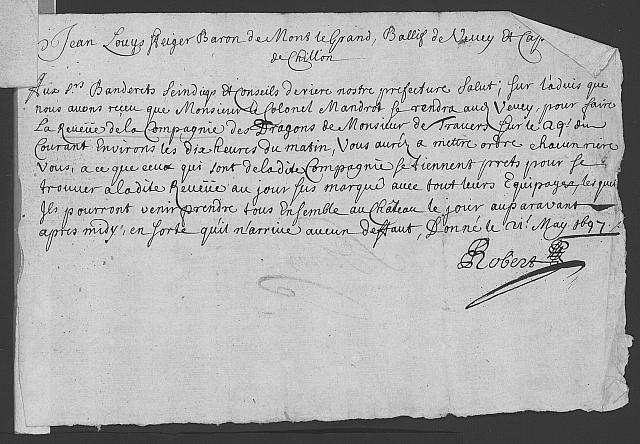 Jean Louys Steiger Baron de Mont le Grand, Ballif de Vevey Et Cap.
de Chillon
Aux Srs Banderets Scindiqs Et Conseils de riere nostre prefecture Salut; Sur l'aduis que
nous auons reçeu que Monsieur le Colonel Mandrot se rendra au Vevey, pour faire
La Reveüe de la Compagnie des Dragons de Monsieur de Travers Sur le 29e du
Courant Environs les dix heures du matin, Vous aurés a mettre ordre chacun riere
Vous, a ce que ceux qui sont de ladite Compagnie se tiennent prets pour se
trouuer a ladite Reveüe au jour sus marqué auec tout leurs Equipages, lesquels
Ils pourront venir prendre tous Ensemble au Château le jour auparavant
apres midy, en sorte quil n'arrive aucun deffaut, Donné le 21e May 1697.
Robert